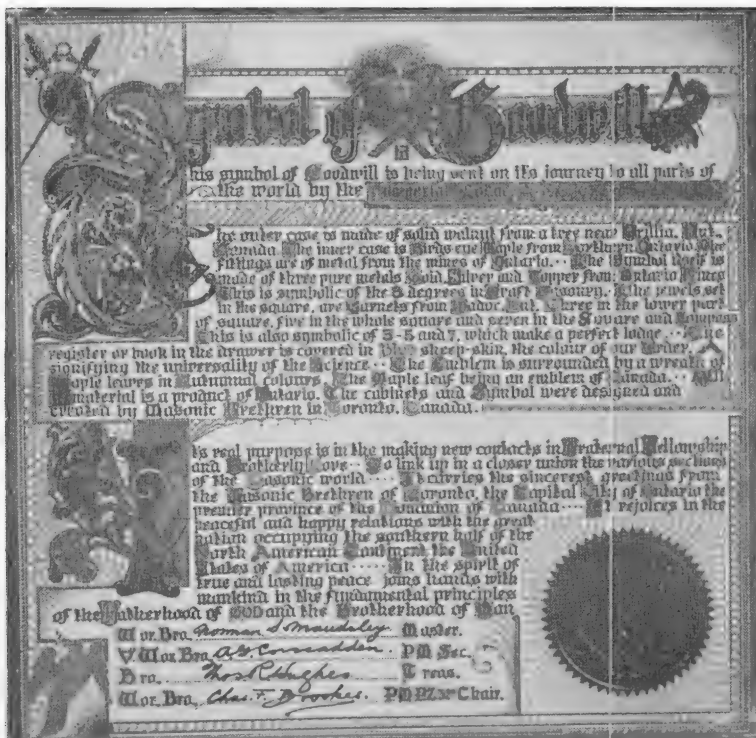 Symbol of Goodwill
This symbol of Goodwill is being sent on its journey to all parts of
the world by the
The outer case is made of solid walnut from a tree near Orillia, Ont.,
Canada. The inner case is Birds eye Maple from Northern Ontario. The
fittings are of metal from the mines of Ontario. .. The Symbol itself is
made of three pure metals Gold, Silver and Copper from Ontario Mines
This is symbolic of the 3 degrees in Craft Masonry. The jewels set
in the square, are Garnets from Madoc, Ont. Three in the lower part
of square, five in the whole square and seven in the Square and Compass
This is also symbolic of 3-5 and 7, which make a perfect lodge ... The
register or book in the drawer is covered in Blue sheep-skin, the colour of our Order,
signifying the universality of the Science .. The Emblem is surrounded by a wreath of
Maple leaves in Autumnal colours. The Maple leaf being an emblem of Canada... All
material is a product of Ontario. The cabinets and Symbol were designed and
created by Masonic Brethren in Toronto, Canada.
Its real purpose is in the making new contacts in Fraternal Fellowship
and Brotherly Love .. To link up in a closer union the various sections
of the Masonic world ... It carries the sincerest greetings from
the Masonic Brethren of Toronto, the Capital City of Ontario the
premier province of the Dominion of Canada ... It rejoices in the
peaceful and happy relations with the great
nation occupying the southern half of the
North American Continent the United
States of America ..... In the spirit of
true and lasting peace joins hands with
mankind in the fundamental principles
of the Fatherhood of GOD and the Brotherhood of Man
Wor. Bro. Norman S. Maudsley Master.
V. Wor. Bro. P.M. Sec.
Bro. Thos R Hughes Treas.
Wor. Bro. Chas. F. Brookes. Chair.